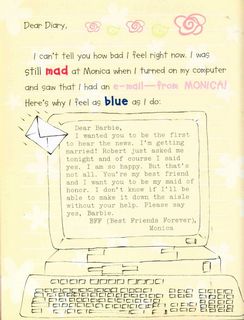 Dear Diary,
I can't tell you how bad I feel right now. I was
still mad at Monica when I turned on my computer
and saw that I had an e-mail—from MONICA!
Here's why I feel as blue as I do:
Dear Barbie,
I wanted you to be the first
to hear the news. I'm getting
married! Robert just asked me
tonight and of course I said
yes. I am so happy. But that's
not all. You're my best friend
and I want you to be my maid of
honor. I don't know if I'll be
able to make it down the aisle
without your help. Please say
yes, Barbie.
BFF (Best Friends Forever),
Monica